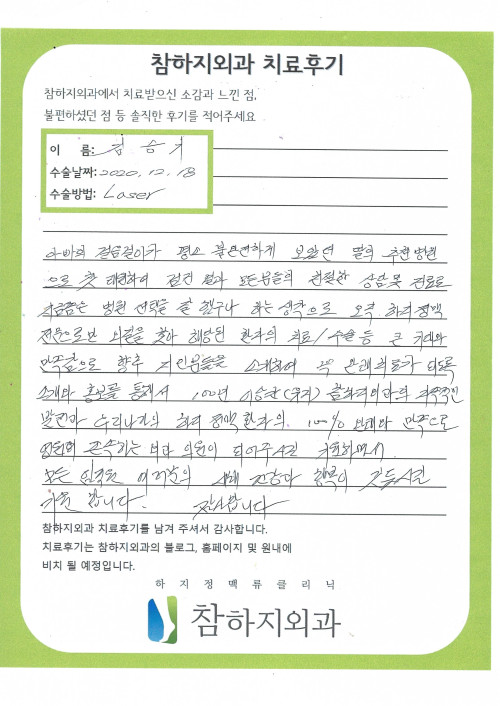 참하지외과 치료후기
참하지외과에서 치료받으신 소감과 느낀 점,
불편하셨던 점 등 솔직한 후기를 적어주세요
이 름: 김
수술날짜: 2020. 12. 18
수술방법: Laser
아빠의 걸음걸이가 평소 불편하게 보았던 딸의 추천병원
으로 첫 내원하여 검진 결과 모든분들의 친절한 상담 및 진료로
병원 선택을 잘 했구나 하는 생각으로 오직 하지정맥
전문으로만 찾아 해당된 환자의 치료/수술 등 큰 기대와
만족감으로 향후 지인분들을 소개하여 꼭 치료가 되도록
소개와 홍보를 통해서 100년 이상 참하지외과의
발전과 우리나라의 하지정맥환자의 100% 만족으로
영원히 의원이 되어주시길 기원하면서
모든 임직원 여러분의 새해 건강과 행복이 깃드시길
기원 합니다. 감사합니다
참하지외과 치료후기를 남겨 주셔서 감사합니다.
치료후기는 참하지외과의 블로그, 홈페이지 및 원내에
비치 될 예정입니다.
하지정맥류클리닉
참하지외과